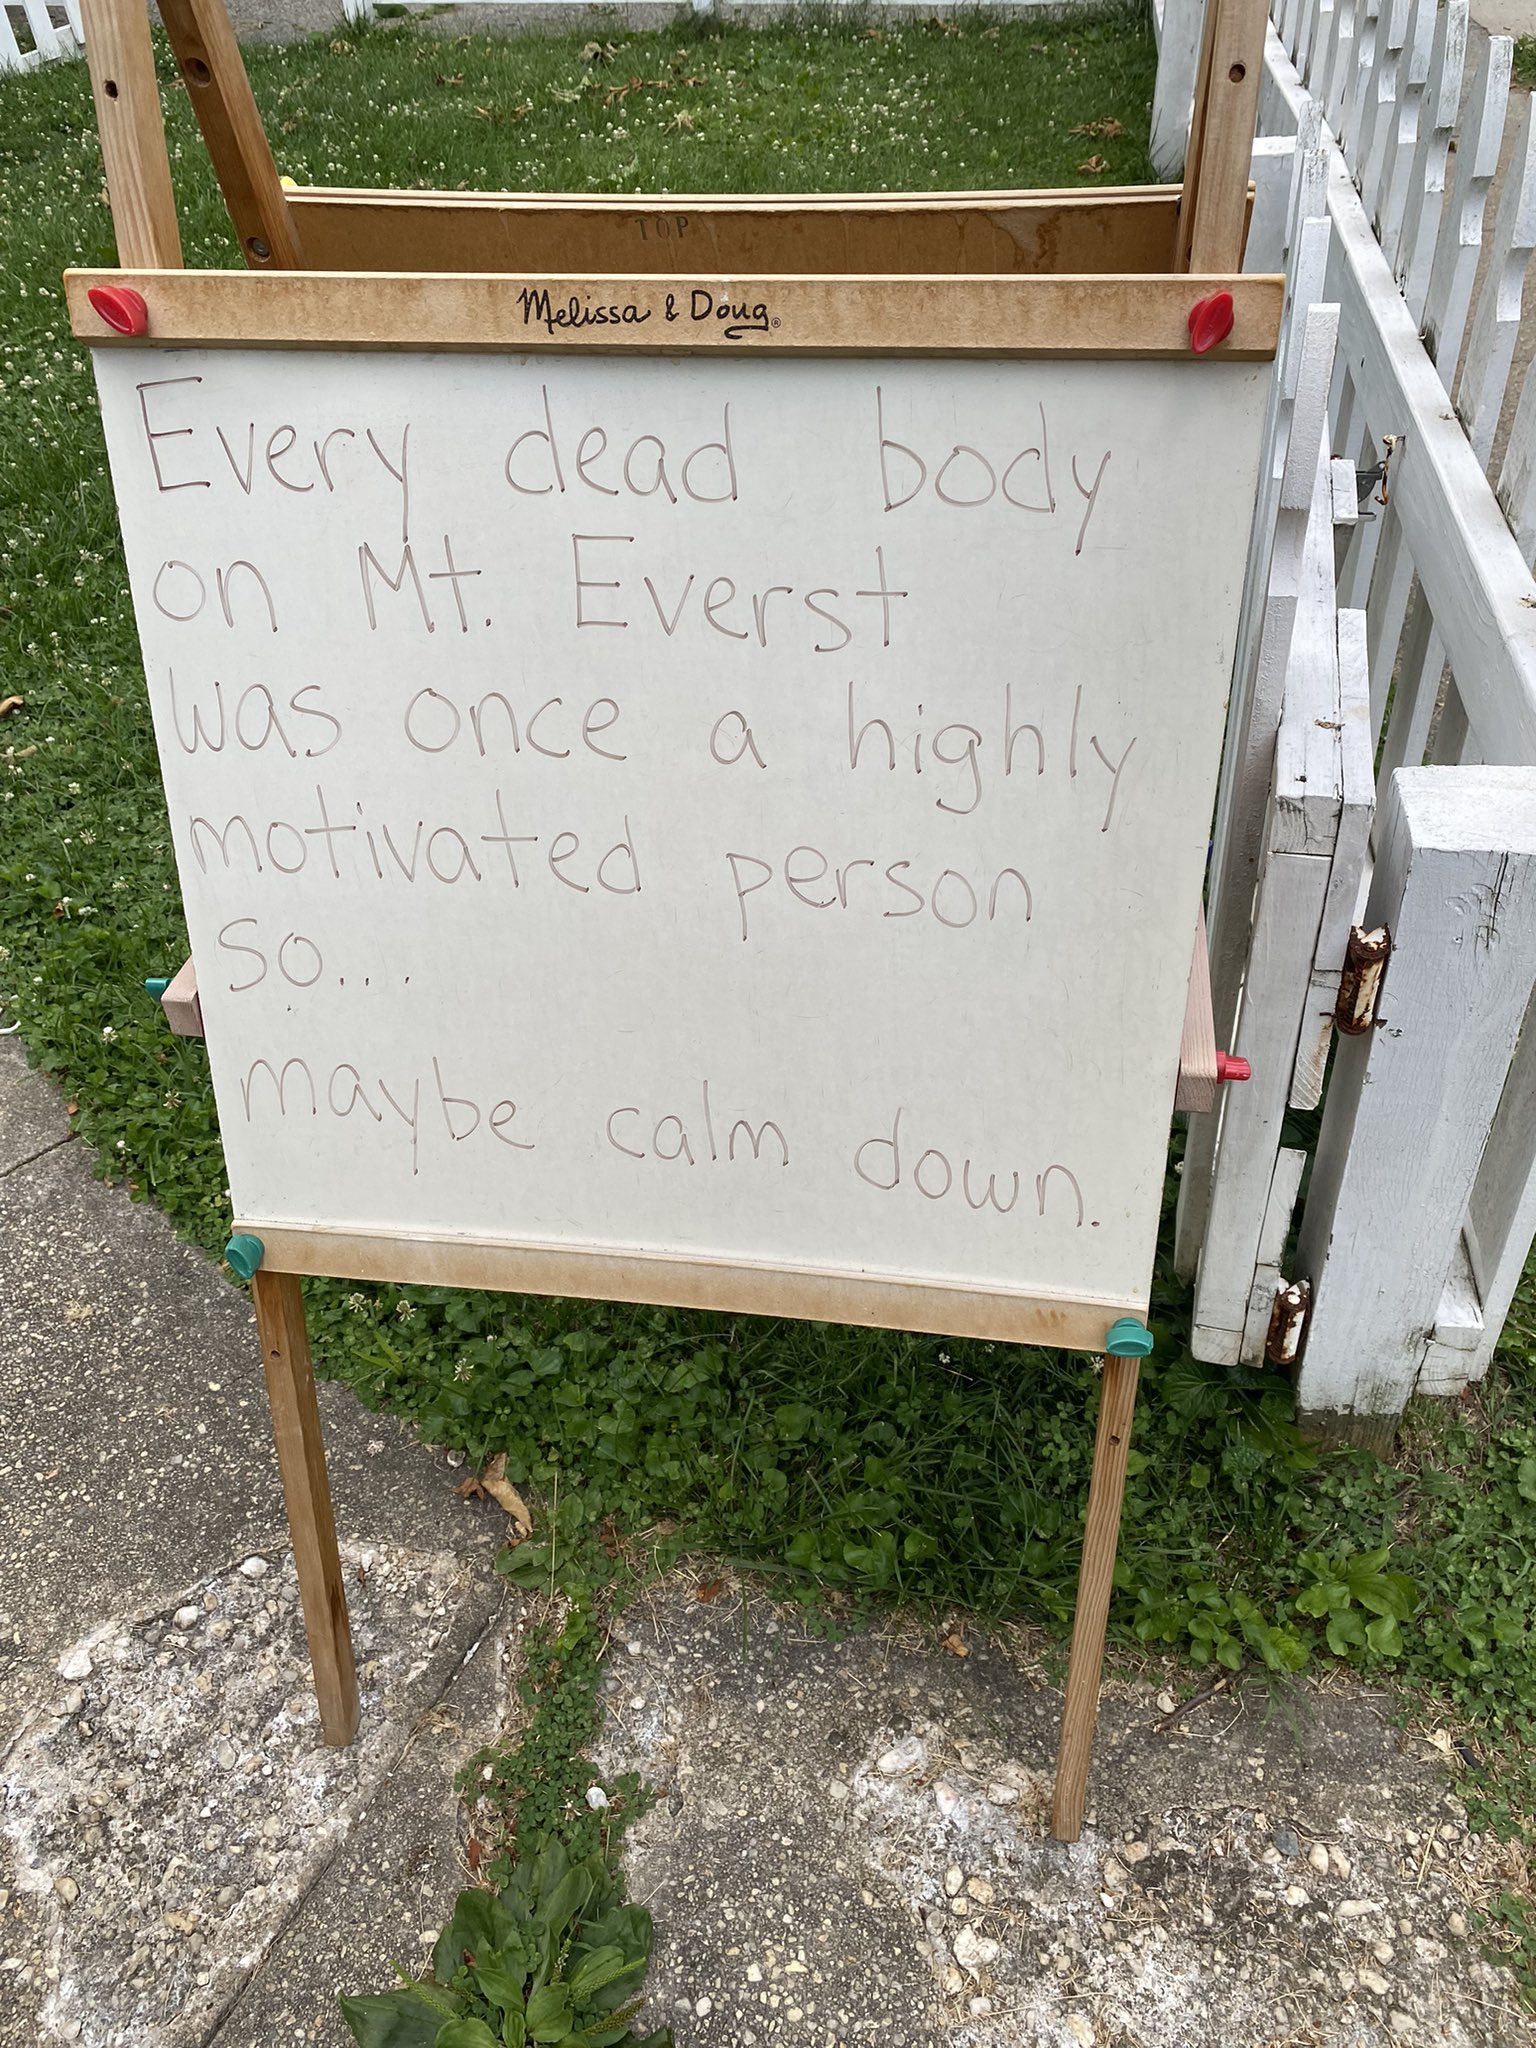 TOP
Melissa & Doug®
Every dead body
on Mt. Everst
was once a highly
motivated person
so...
maybe calm down.